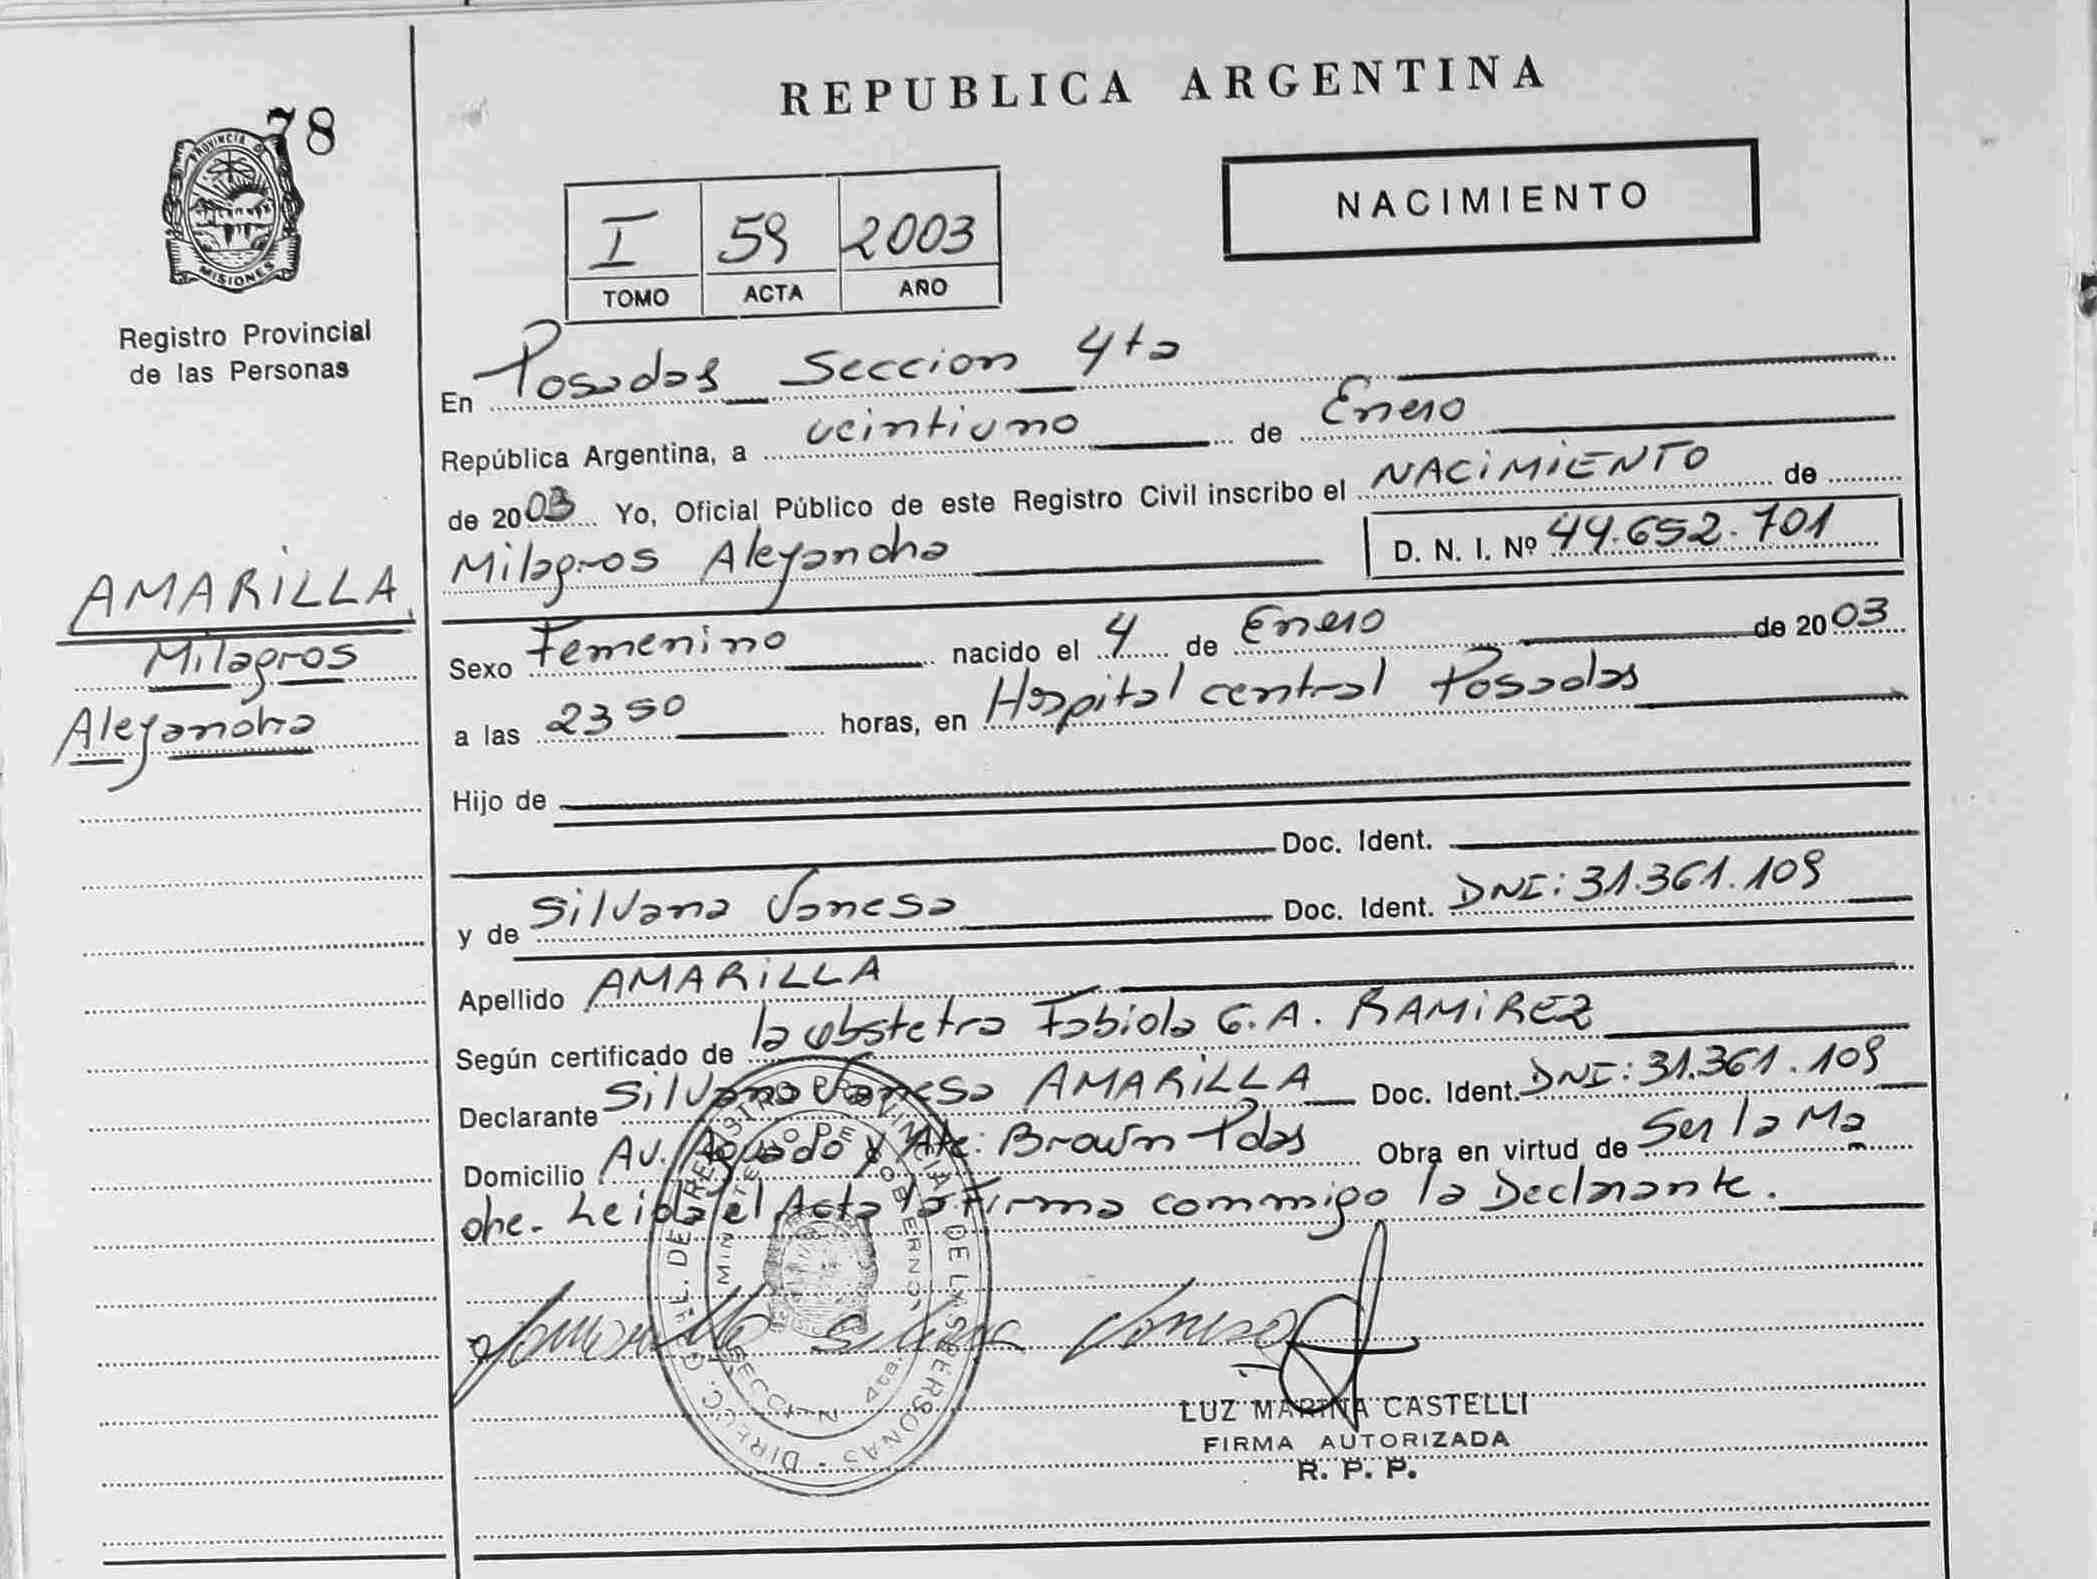 78
PROVINCIA DE
MISIONES
Registro Provincial
de las Personas
AMARiLLA
Milagros
Alejandra
REPUBLICA ARGENTINA
NACIMIENTO
I 59 2003
TOMO ACTA AÑO
En Posadas Seccion 4ta
República Argentina, a veintiuno de Enero
de 2003 Yo, Oficial Público de este Registro Civil inscribo el NACiMiENTO de
Milagros Alejandra D. N. I. Nº 44.652.701
Sexo Femenino nacido el 4 de Enero de 2003
a las 23 50 horas, en Hospital central Posadas
Hijo de
Doc. Ident.
y de Silvana Vanesa Doc. Ident. DNI: 31.361.109
Apellido AMARiLLA
Según certificado de la obstetra Fabiola G. A. RAMiREZ
Declarante Silvana Vanesa AMARiLLA Doc. Ident. DNI: 31.361.109
Domicilio Av. Aguado y Alte. Brown Pdas Obra en virtud de Ser la Ma
dre. Leida el Acta la Firma conmigo la Declarante.
Amarilla Silvana Vanesa
DIREC. GRAL. DE REGISTRO PROVINCIAL DE LAS PERSONAS
MINISTERIO DE GOBIERNO
LUZ MARINA CASTELLI
FIRMA AUTORIZADA
R. P. P.